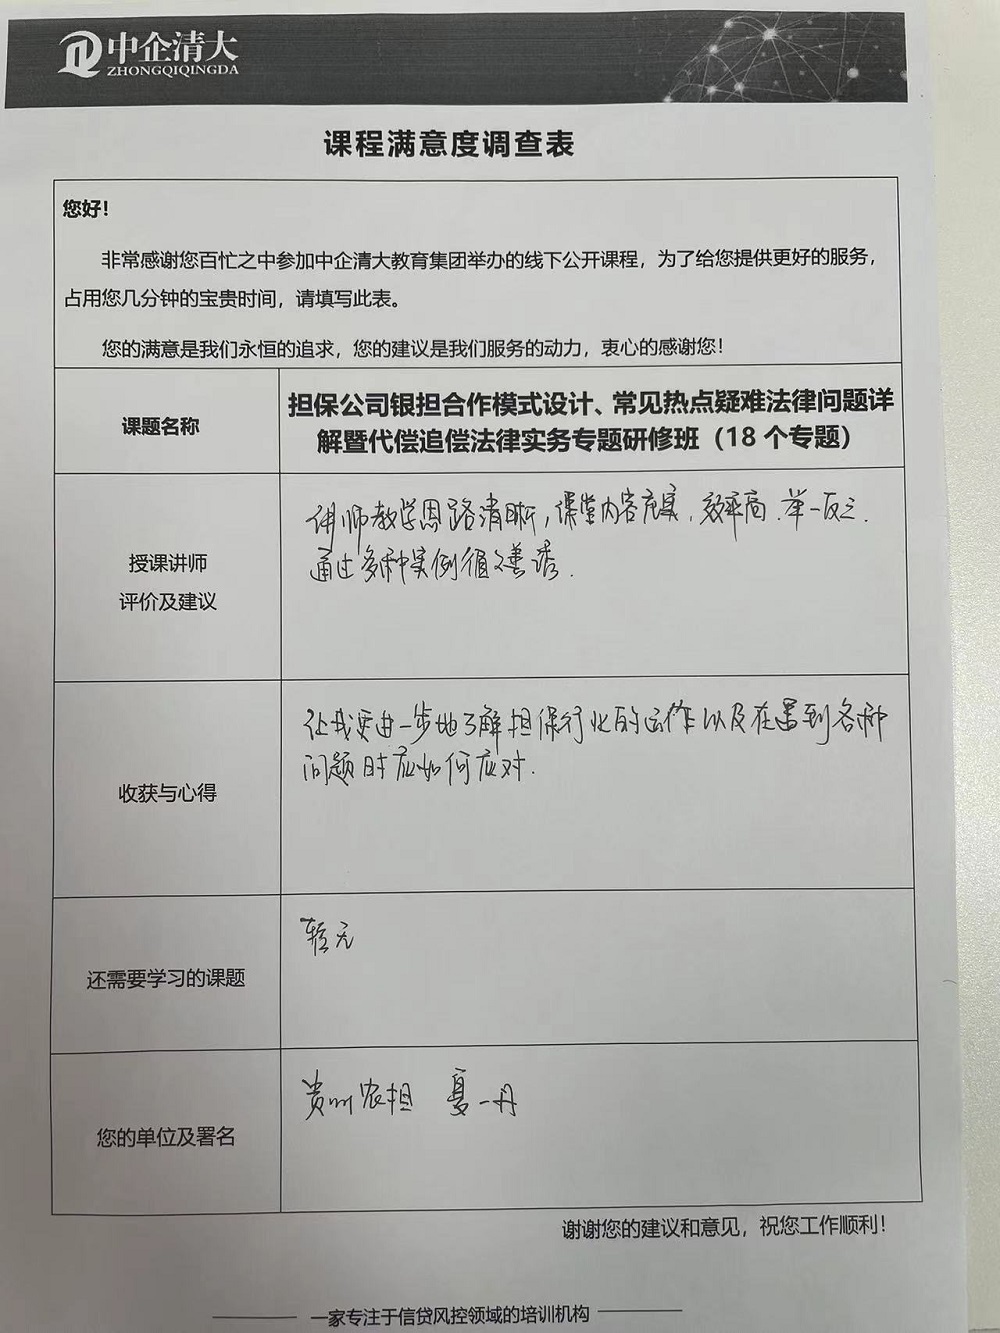 中企清大
ZHONGQIQINGDA
课程满意度调查表
您好！
非常感谢您百忙之中参加中企清大教育集团举办的线下公开课程，为了给您提供更好的服务，
占用您几分钟的宝贵时间，请填写此表。
您的满意是我们永恒的追求，您的建议是我们服务的动力，衷心的感谢您！
课题名称
担保公司银担合作模式设计、常见热点疑难法律问题详
解暨代偿追偿法律实务专题研修班（18 个专题）
授课讲师
评价及建议
讲师教学思路清晰，课堂内容充实，效率高.举一反三.
通过多种实例循循善诱.
收获与心得
让我更进一步地了解担保行业的运作以及在遇到各种
问题时应如何应对.
还需要学习的课题
暂无
您的单位及署名
贵州农担 夏一丹
谢谢您的建议和意见，祝您工作顺利！
一家专注于信贷风控领域的培训机构